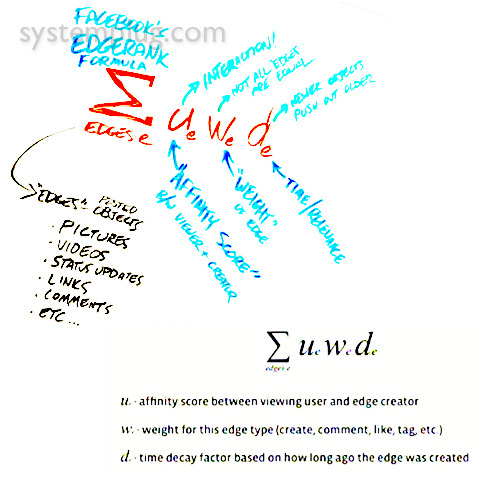 systemplug.com
FACEBOOK'S
EDGERANK
FORMULA
Σ
EDGES e
ue we de
INTERACTION!
NOT ALL EDGES
ARE EQUAL
NEWER OBJECTS
PUSH OUT OLDER
"AFFINITY
SCORE"
B/W VIEWER + CREATOR
"WEIGHT"
OF EDGE
TIME/RELEVANCE
"EDGES" = POSTED
OBJECTS
· PICTURES
· VIDEOS
· STATUS UPDATES
· LINKS
· COMMENTS
· ETC...
Σ ue we de
edges e
ue - affinity score between viewing user and edge creator
we - weight for this edge type (create, comment, like, tag, etc )
de - time decay factor based on how long ago the edge was created